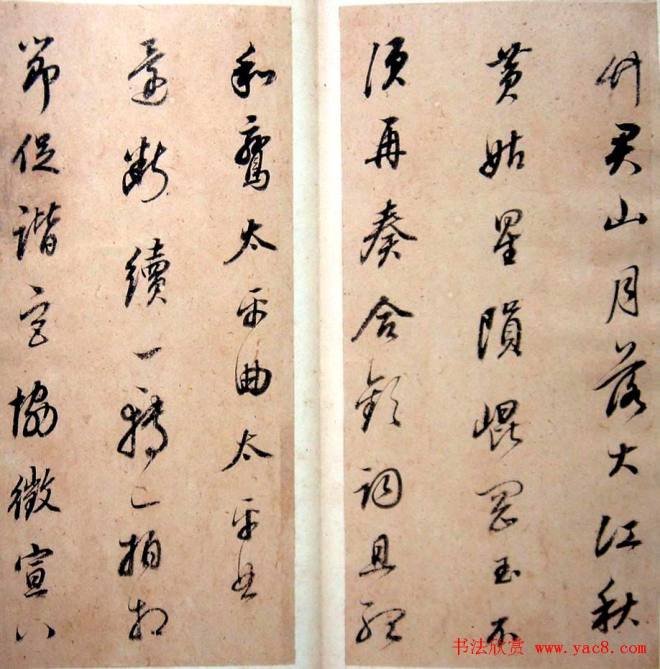 竹君山月落大江秋
黄姑星隕崐岡玉不
須再奏合歡詞且聽
和鸞太平曲太平曲
還斷續一轉一拍相
節促諧宮協徵宣八
书法欣赏
www.yac8.com